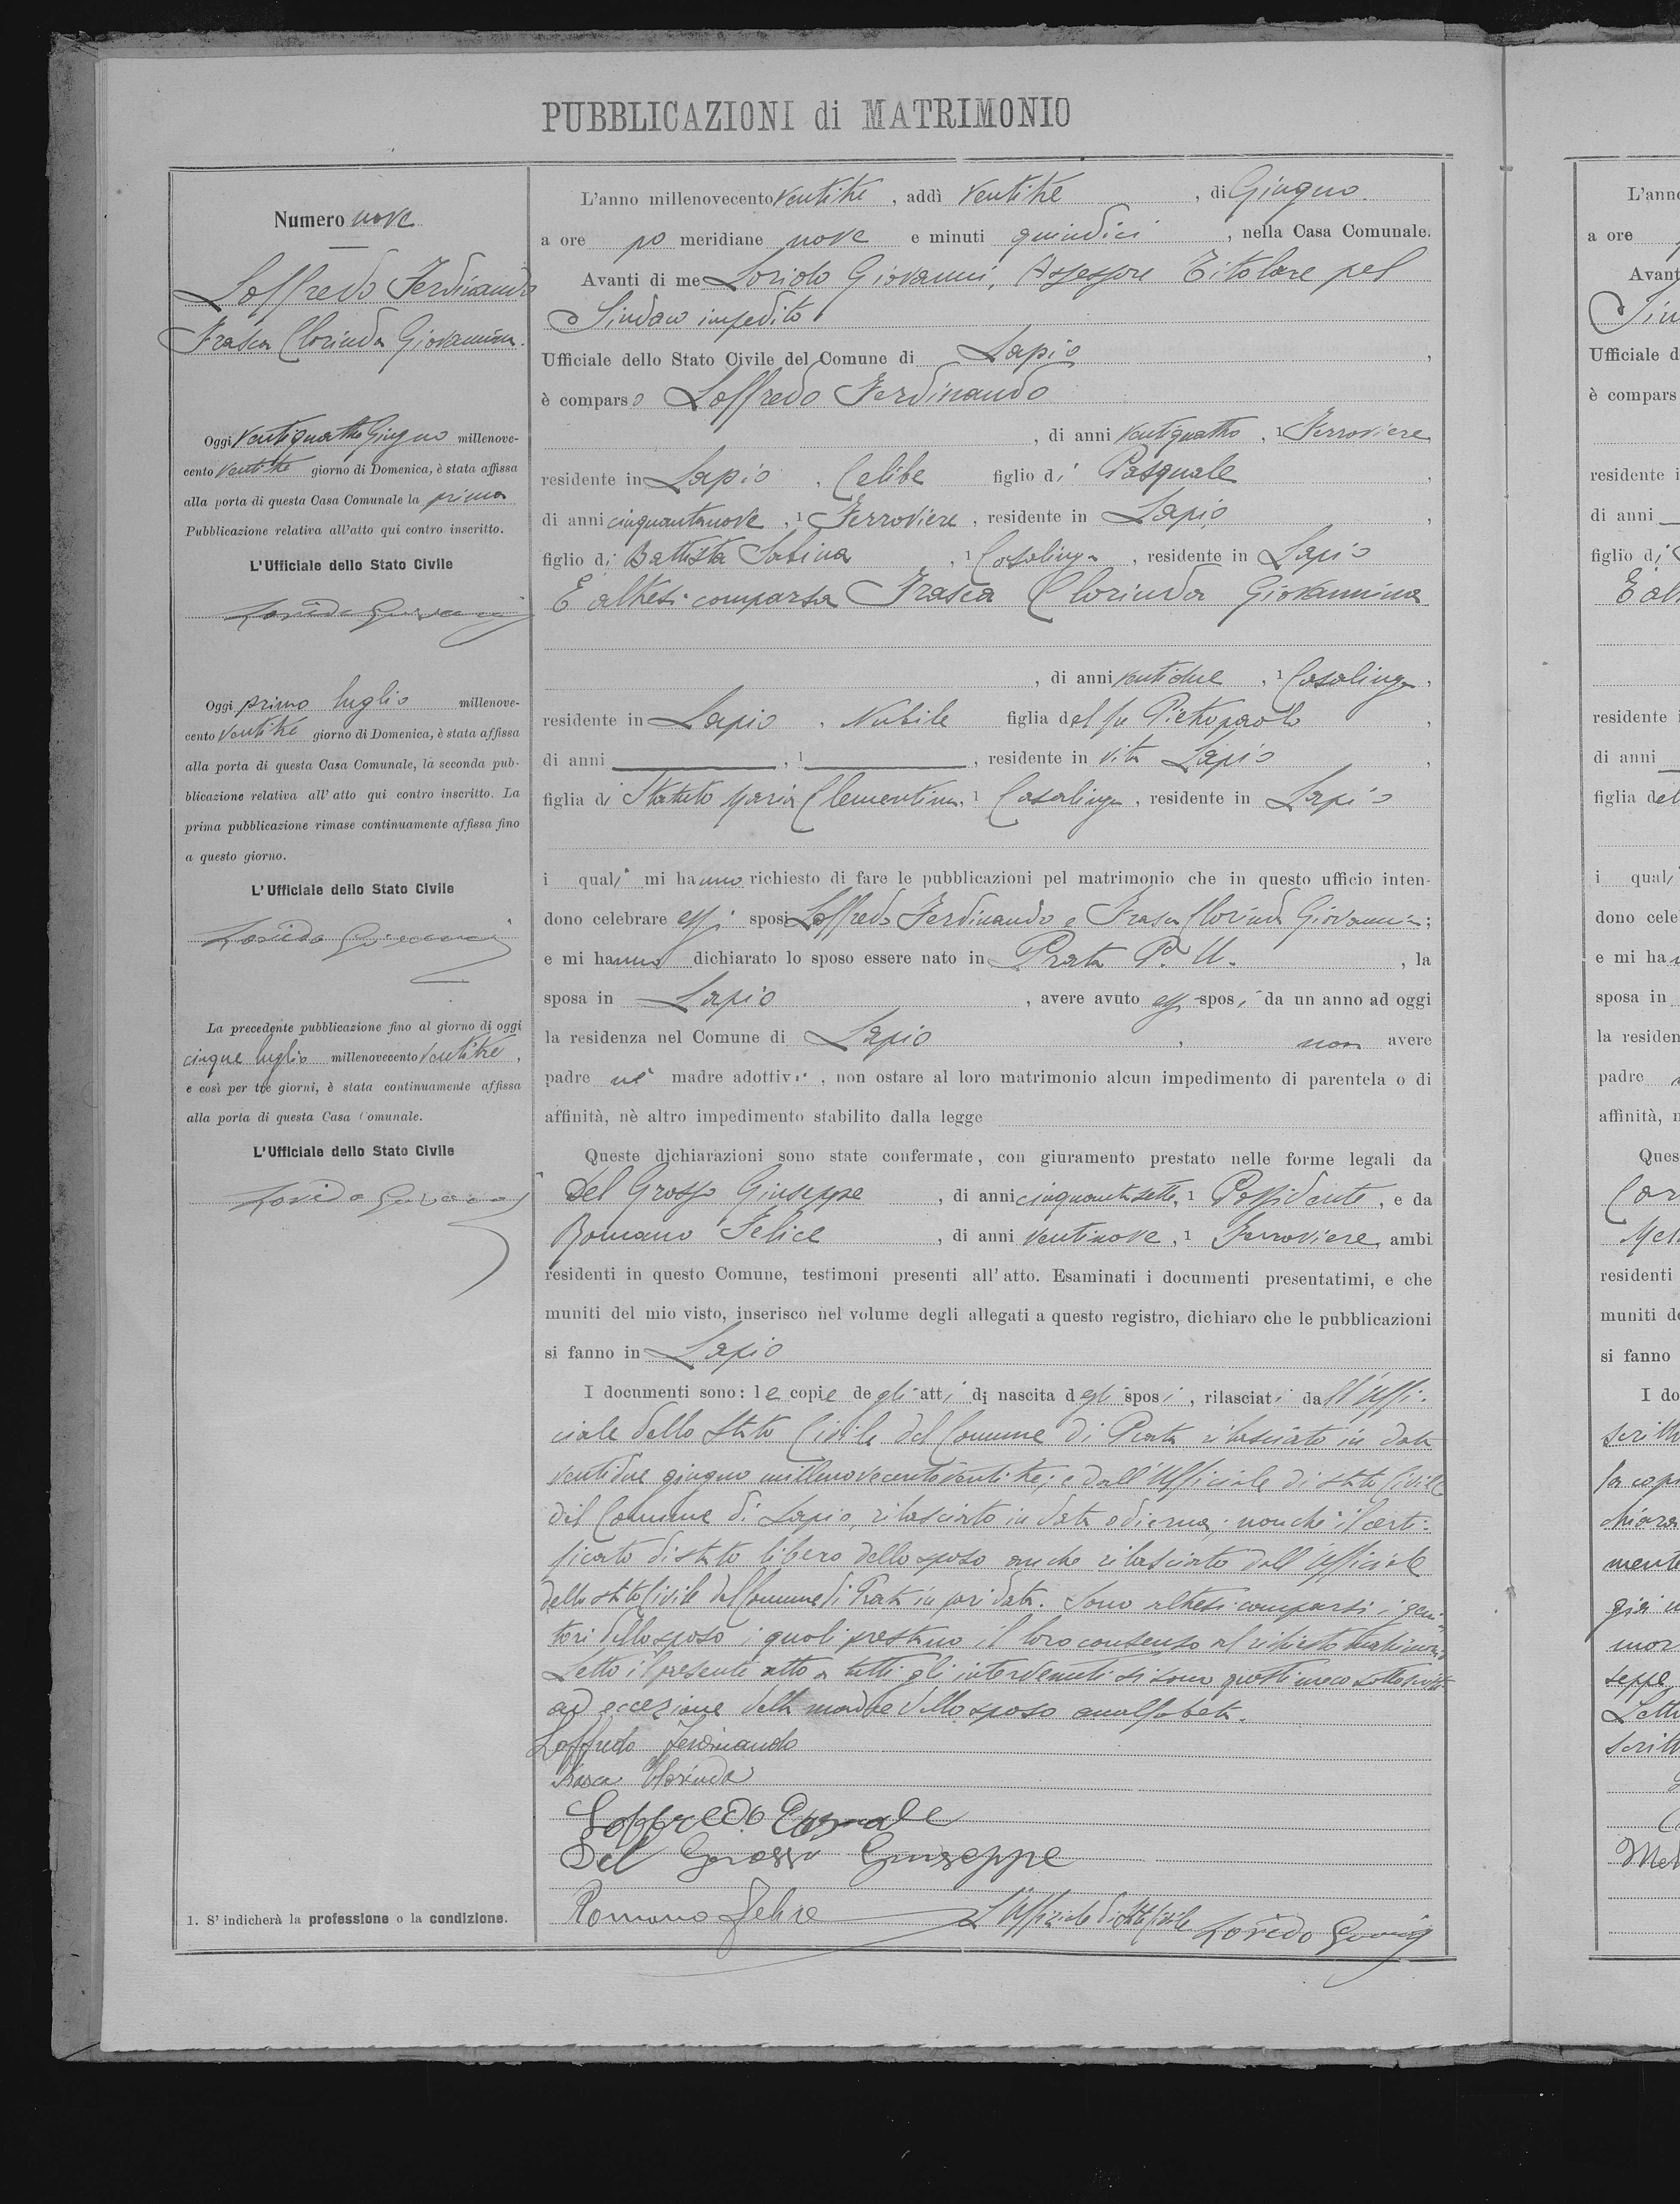 PUBBLICAZIONI di MATRIMONIO
Numero nove
Loffredo Ferdinando
Frasca Clorinda Giovannina.
Oggi ventiquattro Giugno millenove-
cento ventitre giorno di Domenica, è stata affissa
alla porta di questa Casa Comunale la prima
Pubblicazione relativa all'atto qui contro inscritto.
L'Ufficiale dello Stato Civile
Oggi primo luglio millenove-
cento ventitre giorno di Domenica, è stata affissa
alla porta di questa Casa Comunale, la seconda pub-
blicazione relativa all' atto qui contro inscritto. La
prima pubblicazione rimase continuamente affissa fino
a questo giorno.
L'Ufficiale dello Stato Civile
La precedente pubblicazione fino al giorno di oggi
cinque luglio millenovecento ventitre,
e così per tre giorni, è stata continuamente affissa
alla porta di questa Casa Comunale.
L'Ufficiale dello Stato Civile
1. S' indicherà la professione o la condizione.
L'anno millenovecento ventitre, addì ventitre, di Giugno
a ore po meridiane nove e minuti quindici, nella Casa Comunale.
Avanti di me Giovanni, Assessore Titolare pel
Sindaco impedito
Ufficiale dello Stato Civile del Comune di Lapio,
è comparso Loffredo Ferdinando
, di anni ventiquattro, 1 Ferroviere
residente in Lapio, Celibe figlio di Pasquale,
di anni cinquantanove, 1 Ferroviere, residente in Lapio,
figlio di Battista Sabina, 1 Casalinga, residente in Lapio
E altresi comparsa Frasca Clorinda Giovannina
, di anni ventidue, 1 Casalinga,
residente in Lapio, Nubile figlia del fu Pietropaolo,
di anni , 1 , residente in vita Lapio,
figlia di Statuto Maria Clementina, 1 Casalinga, residente in Lapio
i quali mi hanno richiesto di fare le pubblicazioni pel matrimonio che in questo ufficio inten-
dono celebrare essi sposi Loffredo Ferdinando e Frasca Clorinda Giovannina;
e mi hanno dichiarato lo sposo essere nato in Prata P. U., la
sposa in Lapio, avere avuto essi sposi da un anno ad oggi
la residenza nel Comune di Lapio, non avere
padre nè madre adottivi, non ostare al loro matrimonio alcun impedimento di parentela o di
affinità, nè altro impedimento stabilito dalla legge
Queste dichiarazioni sono state confermate, con giuramento prestato nelle forme legali da
Del Grosso Giuseppe, di anni cinquantasette, 1 Possidente, e da
Romano Felice, di anni ventinove, 1 Ferroviere, ambi
residenti in questo Comune, testimoni presenti all' atto. Esaminati i documenti presentatimi, e che
muniti del mio visto, inserisco nel volume degli allegati a questo registro, dichiaro che le pubblicazioni
si fanno in Lapio
I documenti sono: le copie degli atti di nascita degli sposi, rilasciati dall'Uffi-
ciale dello Stato Civile del Comune di Prata rilasciato in data
ventidue giugno millenovecentoventitre; e dall'Ufficiale di stato Civile
del Comune di Lapio, rilasciato in data odierna; nonchè il certi-
ficato di stato libero dello sposo anche rilasciato dall'Ufficiale
dello stato Civile del Comune di Prata in pari data. Sono altresi comparsi i geni-
tori dello sposo i quali prestano il loro consenso al richiesto matrimonio
Letto il presente atto a tutti gli intervenuti si sono questi meco sottoscritti
ad eccezione della madre dello sposo analfabeta.
Loffredo Ferdinando
Frasca Clorinda
Loffredo Pasquale
Del Grosso Giuseppe
Romano Felice L'Uffiziale di Stato Civile
L'anno
a ore
Avant
Sin
Ufficiale d
è compars
residente i
di anni
figlio di
E alt
residente i
di anni
figlia del
i quali
dono cele
e mi ha
sposa in
la residen
padre
affinità, n
Ques
residenti
muniti de
si fanno
I do